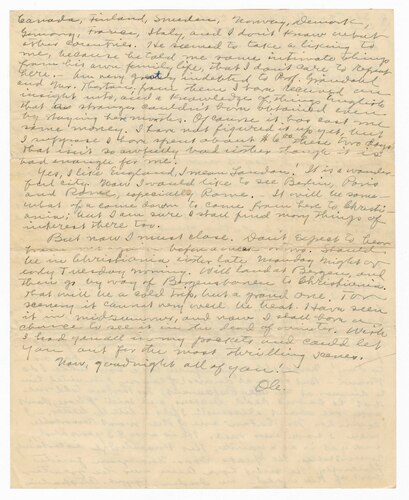 Canada, Finland, Sweden, Norway, Denmark,
Germany, France, Italy, and I don't know what
other countries. He seemed to take a liking to
me, because he told me some intimate things
from his own family life, that I don't care to repeat
here. Am very greatly indebted to Prof.
and Mrs. from them I have received an
insight into and a knowledge of things English
that a stranger couldn't have obtained
by staying here months. Of course it has cost me
some money. I have not figured it up yet, but
I suppose I have spent about these two days
That isn't so awfully bad either though it is
bad enough for me.
Yes, I like England, I mean London. It is a wonder-
ful city. Now I would like to see Berlin, Paris
and Rome, especially Rome. It will be some-
what of a come down to come from here to Christi-
ania; but I am sure I shall find many things of
interest there too.
But now I must close. Don't expect to hear
from me again before
be in Christiania either late Monday night or
early Tuesday morning. Will land at Bergen, and
then go by way of Bergensbanen to Christiania.
That will be a cold trip, but a grand one. For
scenery it cannot very well be beat. Have seen
it in midsummer, and now I shall have a
chance to see it in the dead of winter. Wish
I had you all in my pockets, and could let
you out for the most thrilling scenes.
Now, goodnight all of you! —
Ole.